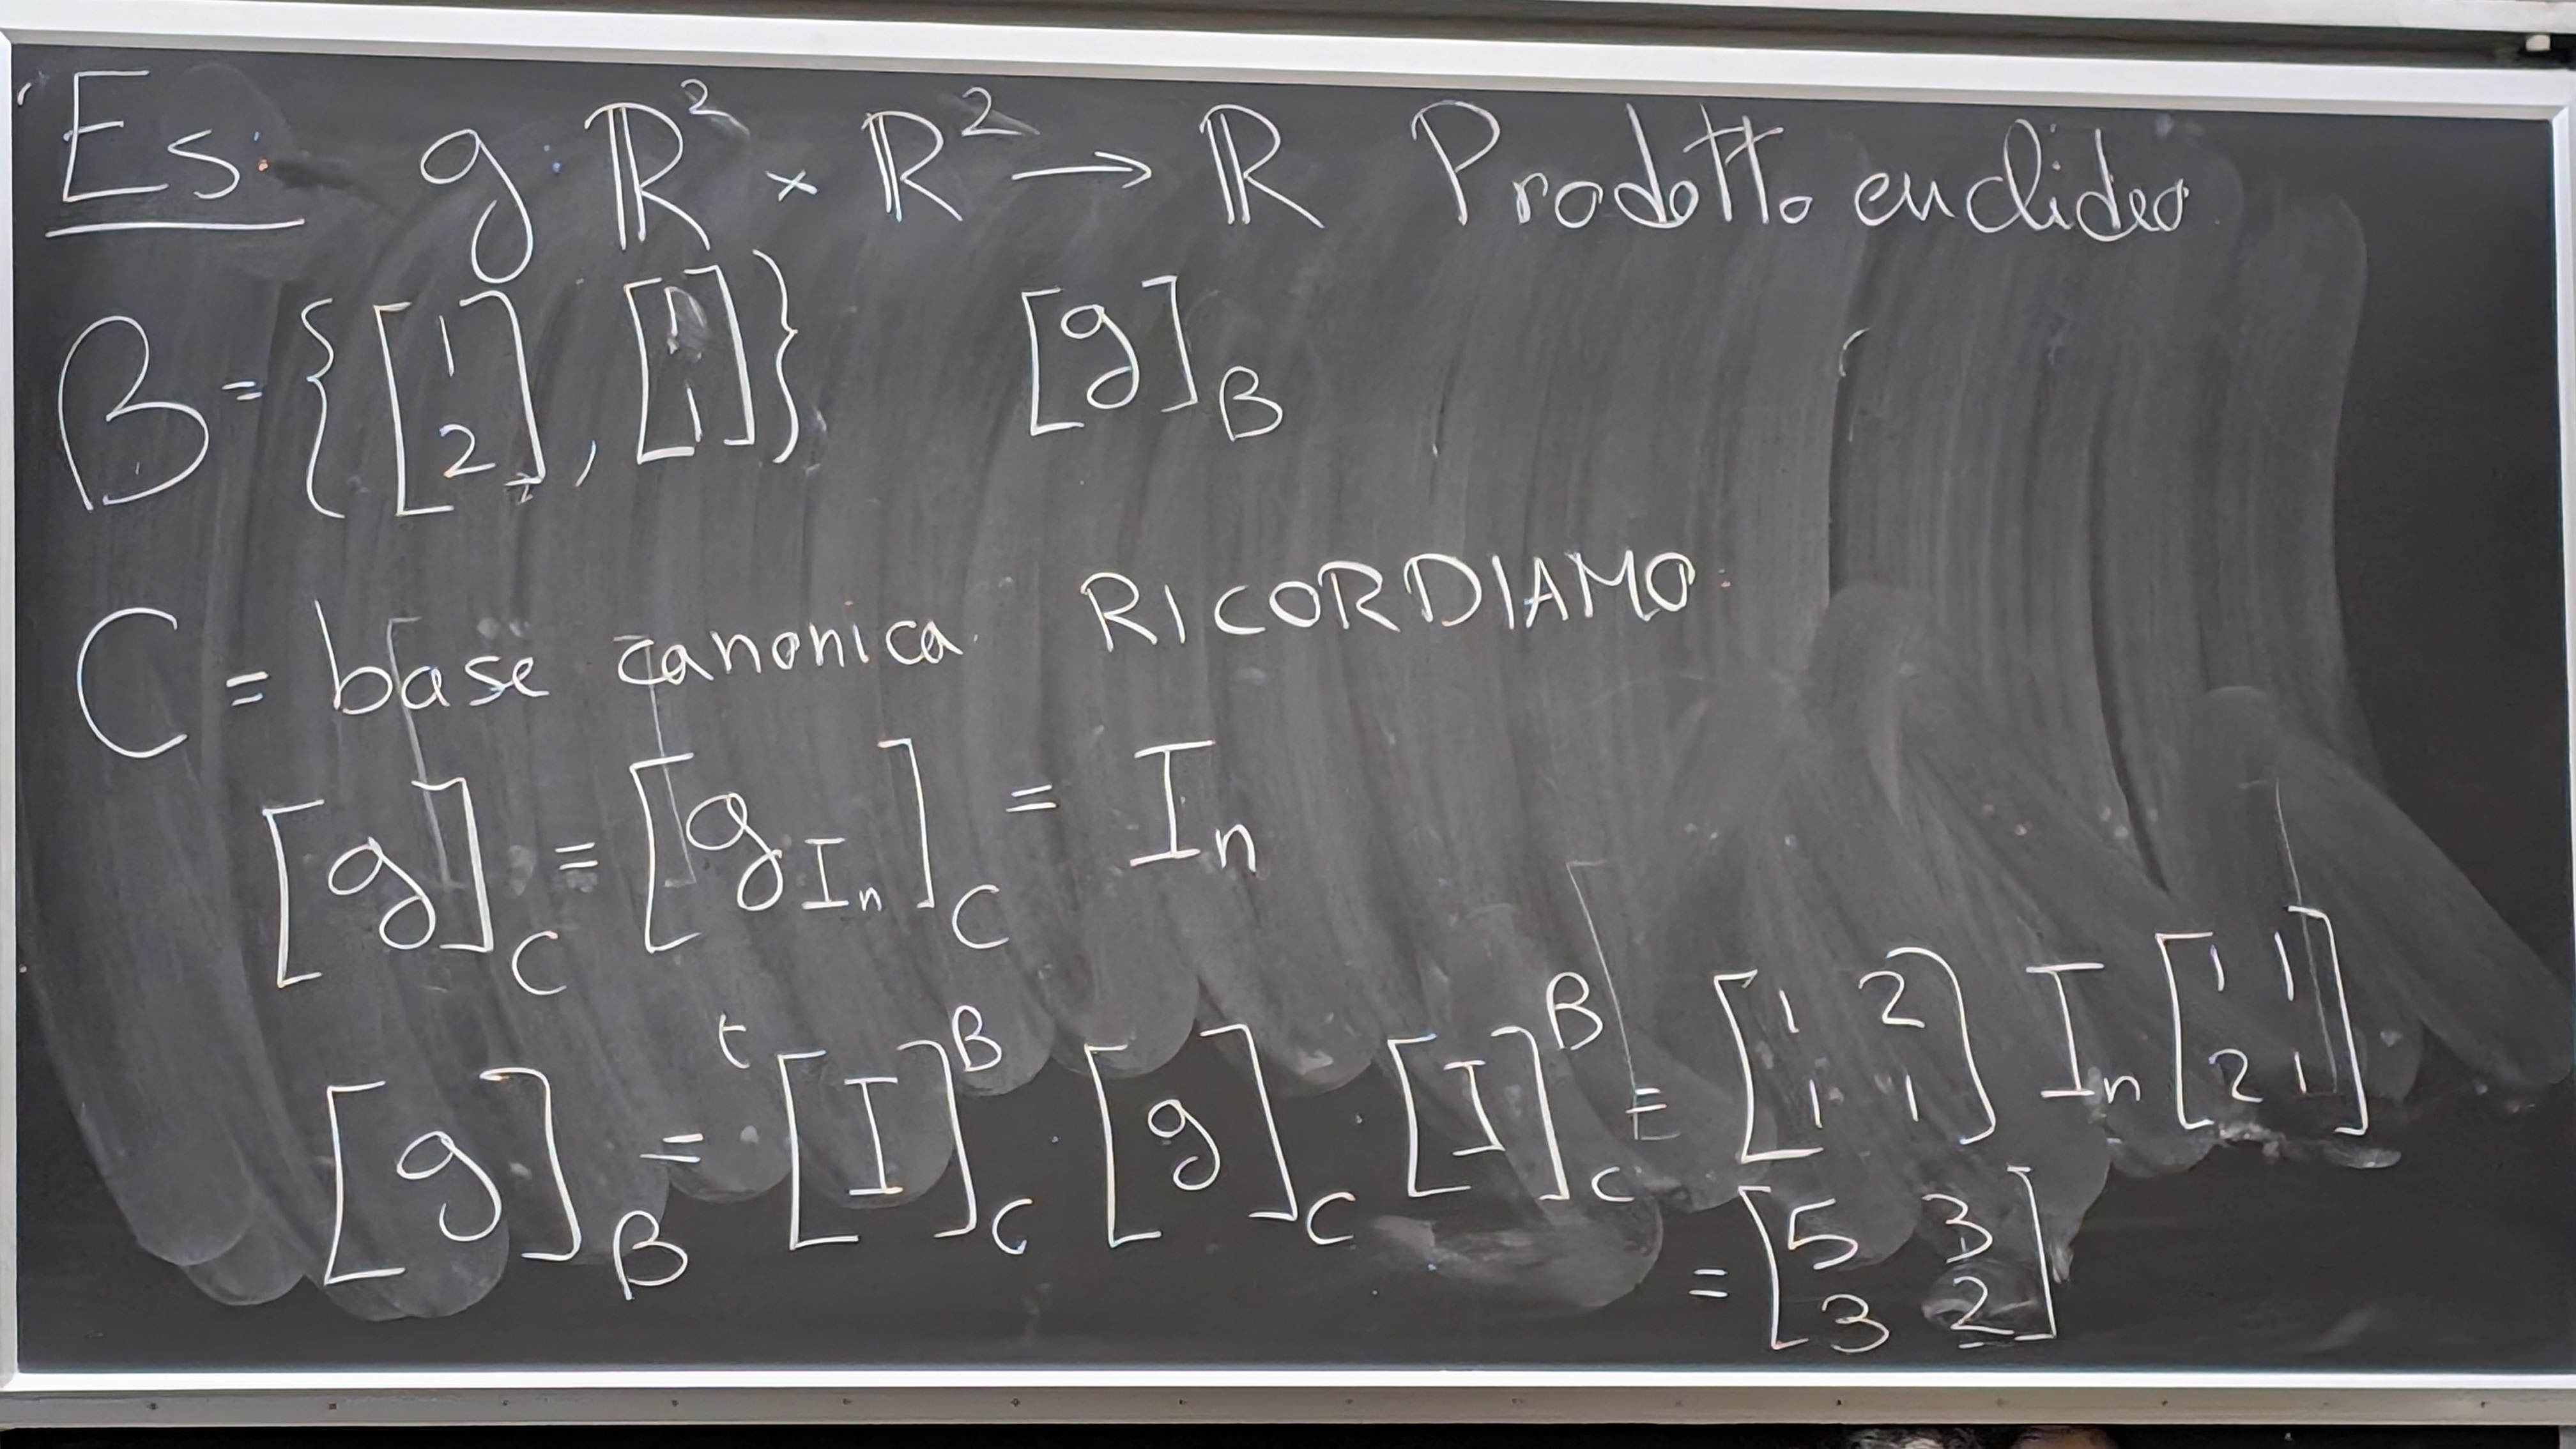 Es: g: ℝ² × ℝ² → ℝ Prodotto euclideo
B = {[1 2], [1 1]} [g]_B
C = base canonica. RICORDIAMO:
[g]_C = [g_{I_n}]_C = I_n
[g]_B = ᵗ[I]^B_C · [g]_C · [I]^B_C = [1 2; 1 1] I_n [1 1; 2 1]
= [5 3; 3 2]